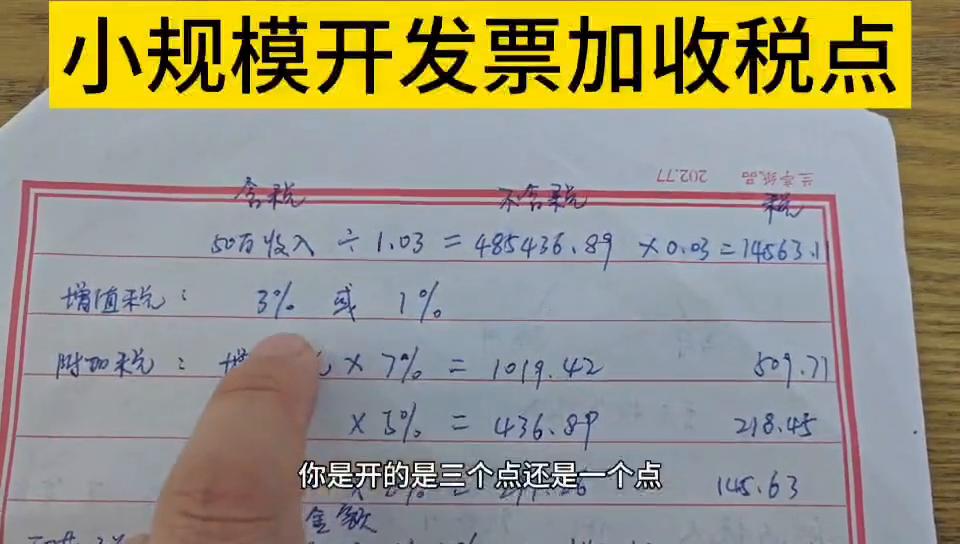 小规模开发票加收税点
兰亭纸品 202.77
含税 不含税 税
50万收入 ÷ 1.03 = 485436.89 × 0.03 = 14563.11
增值税： 3% 或 1%
附加税： 增 × 7% = 1019.42 509.71
× 5% = 436.89 218.45
145.63
你是开的是三个点还是一个点
金额